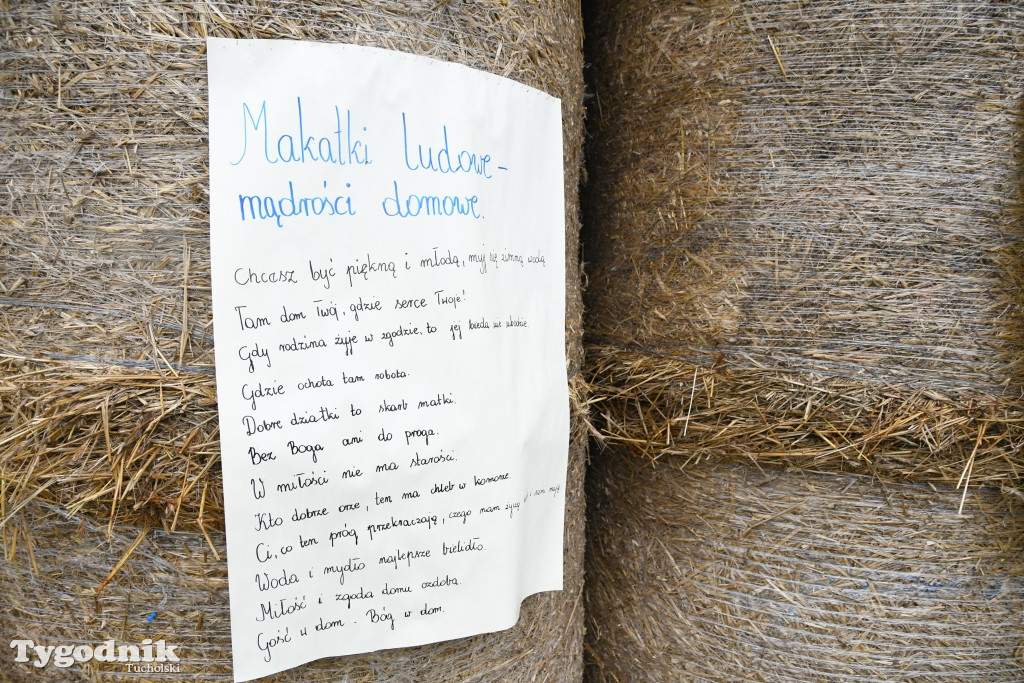 Makatki ludowe -
mądrości domowe.
Chcesz być piękną i młodą, myj się zimną wodą
Tam dom Twój, gdzie serce Twoje!
Gdy rodzina żyje w zgodzie, to jej bieda nie ubodzie.
Gdzie ochota tam robota.
Dobre dziatki to skarb matki.
Bez Boga ani do proga.
W miłości nie ma starości.
Kto dobrze orze, ten ma chleb w komorze.
Ci, co ten próg przekraczają, czego nam życzą i sami mają
Woda i mydło najlepsze bielidło.
Miłość i zgoda domu ozdoba.
Gość w dom - Bóg w dom.
Tygodnik
Tucholski